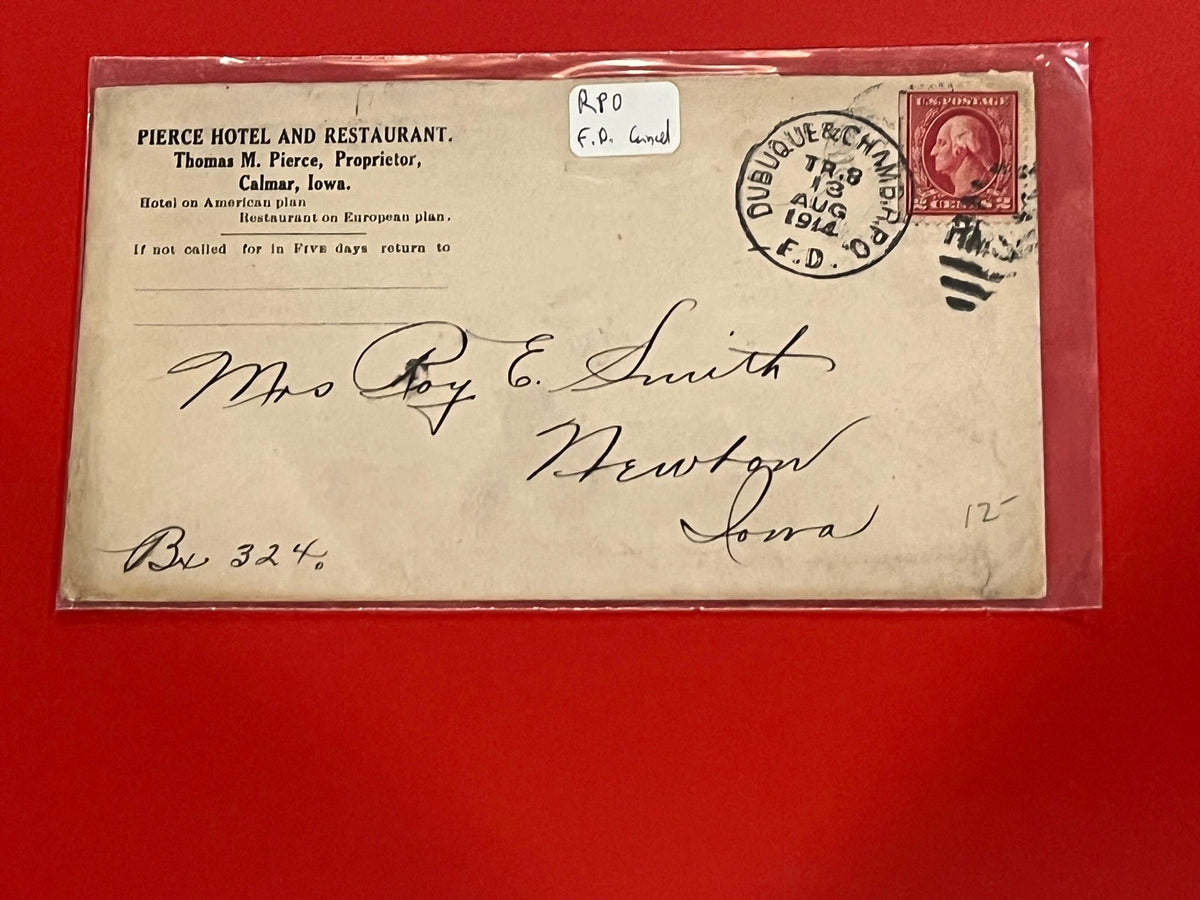 PIERCE HOTEL AND RESTAURANT.
Thomas M. Pierce, Proprietor,
Calmar, Iowa.
Hotel on American plan
Restaurant on European plan.
If not called for in FIVE days return to
RPO
F.D. Cancel
DUBUQUE & CHAMB. R.P.O.
TR. 8
13
AUG
1914
F.D.
U.S. POSTAGE
2 CENTS 2
RMS
Mrs Roy E. Smith
Newton
Iowa
Bx 324.
12-